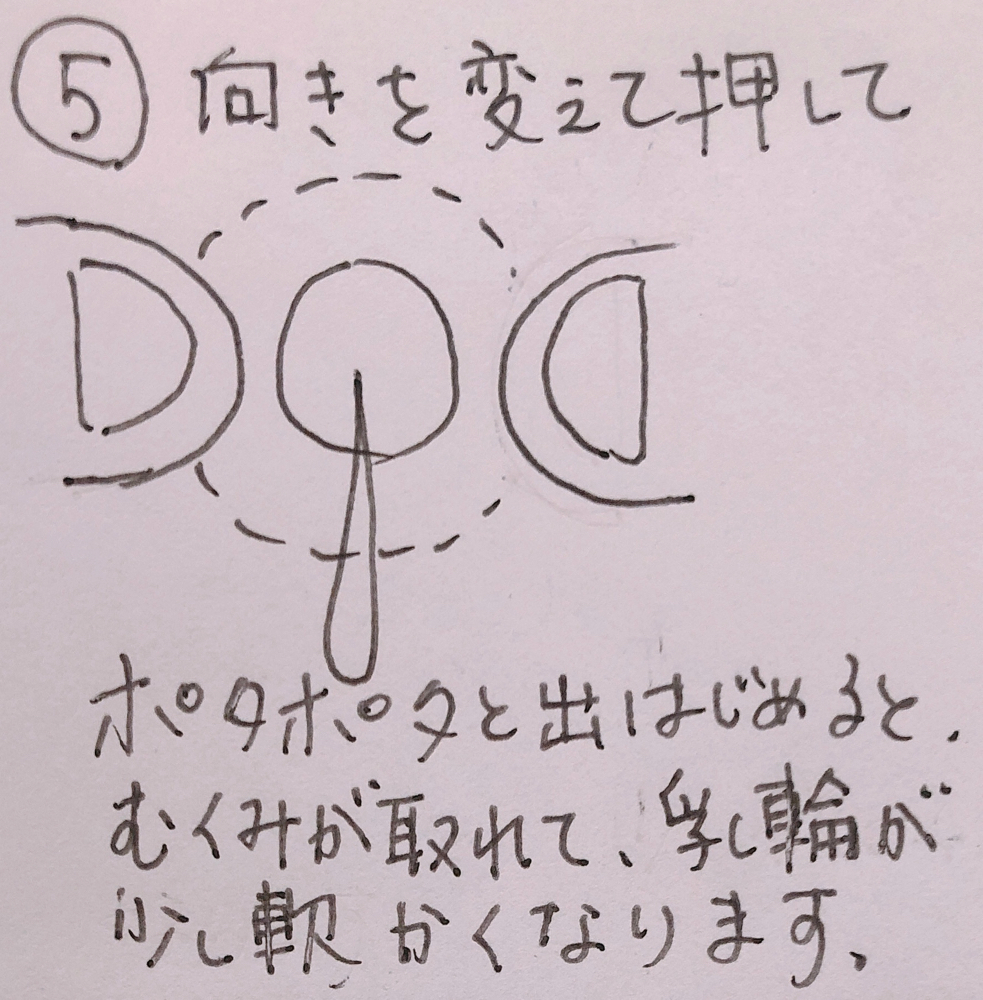 ⑤ 向きを変えて押して
ポタポタと出はじめると、
むくみが取れて、乳輪が
少し軟かくなります、